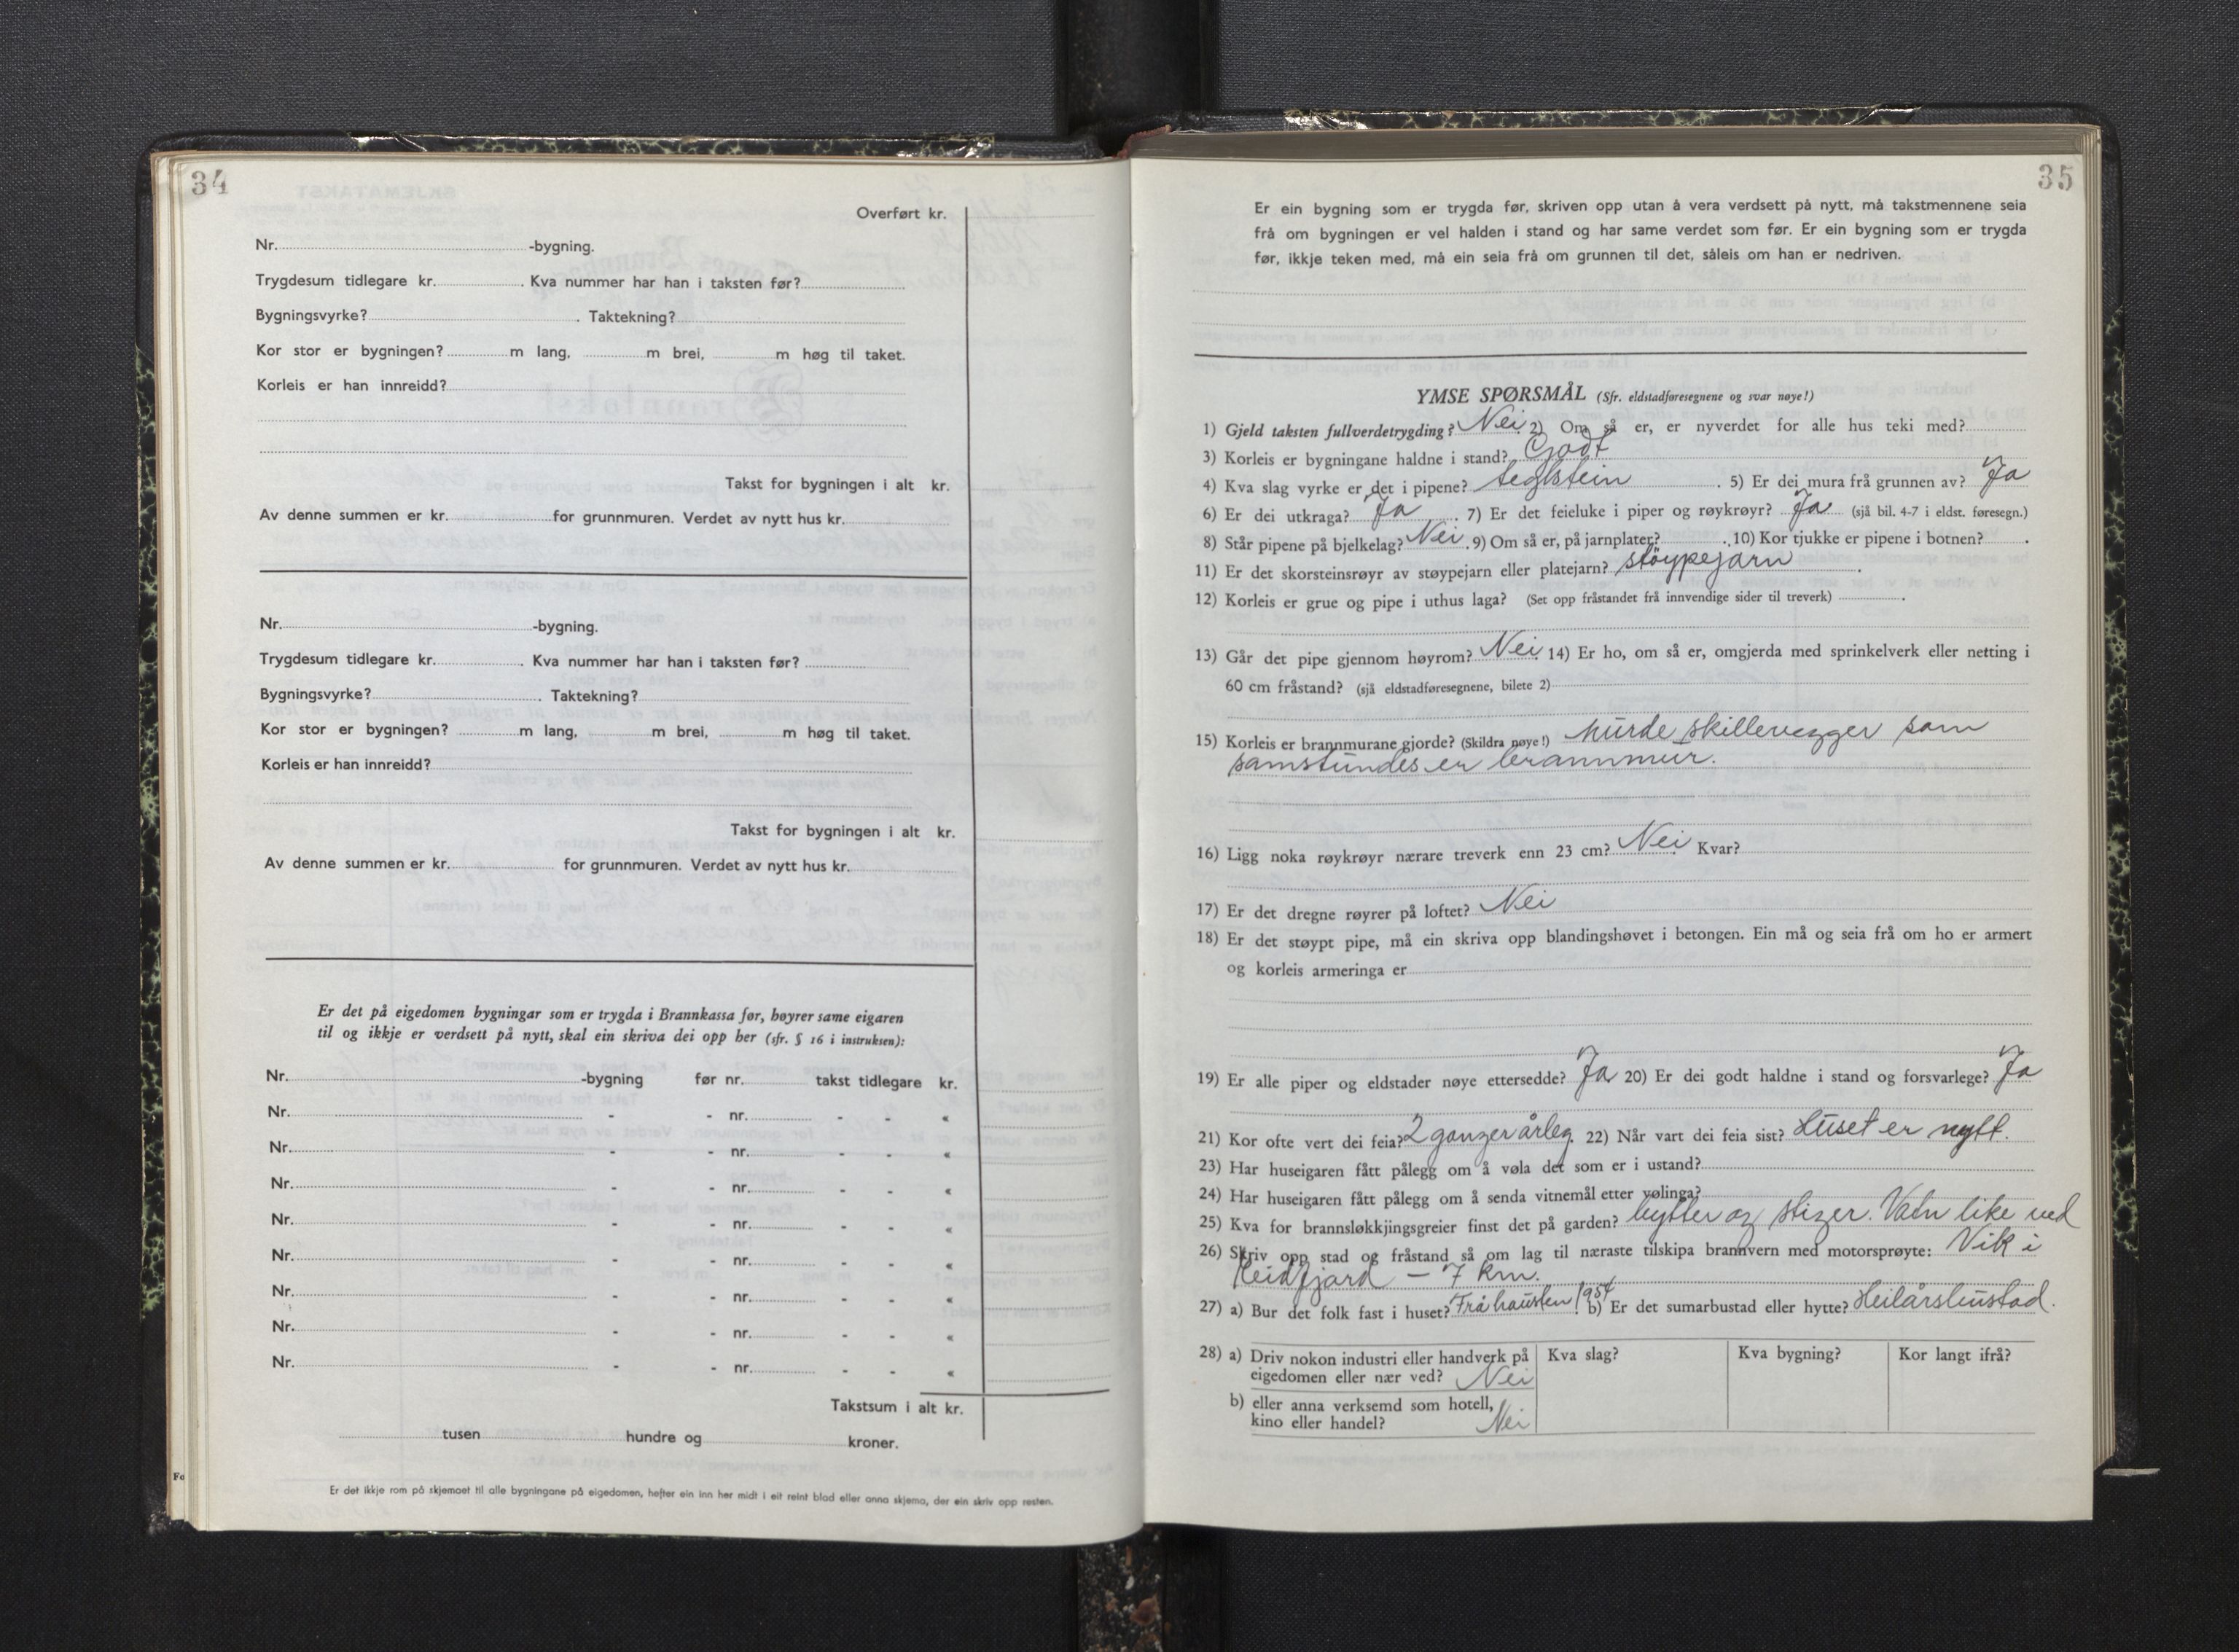 34
Overført kr.
Nr. -bygning.
Trygdesum tidlegare kr. . Kva nummer har han i taksten før?
Bygningsvyrke? . Taktekning?
Kor stor er bygningen? m lang, m brei, m høg til taket.
Korleis er han innreidd?
Takst for bygningen i alt kr.
Av denne summen er kr. for grunnmuren. Verdet av nytt hus kr.
Nr. -bygning.
Trygdesum tidlegare kr. . Kva nummer har han i taksten før?
Bygningsvyrke? . Taktekning?
Kor stor er bygningen? m lang, m brei, m høg til taket.
Korleis er han innreidd?
Takst for bygningen i alt kr.
Av denne summen er kr. for grunnmuren. Verdet av nytt hus kr.
Er det på eigedomen bygningar som er trygda i Brannkassa før, høyrer same eigaren
til og ikkje er verdsett på nytt, skal ein skriva dei opp her (sfr. § 16 i instruksen):
Nr. -bygning før nr. takst tidlegare kr.
Nr. - - nr. - - «
Nr. - - nr. - - «
Nr. - - nr. - - «
Nr. - - nr. - - «
Nr. - - nr. - - «
Nr. - - nr. - - «
Nr. - - nr. - - «
Nr. - - nr. - - «
Takstsum i alt kr.
tusen hundre og kroner.
Fo
Er det ikkje rom på skjemaet til alle bygningane på eigedomen, hefter ein inn her midt i eit reint blad eller anna skjema, der ein skriv opp resten.
35
Er ein bygning som er trygda før, skriven opp utan å vera verdsett på nytt, må takstmennene seia
frå om bygningen er vel halden i stand og har same verdet som før. Er ein bygning som er trygda
før, ikkje teken med, må ein seia frå om grunnen til det, såleis om han er nedriven.
YMSE SPØRSMÅL (Sfr. eldstadføresegnene og svar nøye!)
1) Gjeld taksten fullverdetrygding? Nei. 2) Om så er, er nyverdet for alle hus teki med?
3) Korleis er bygningane haldne i stand? Godt
4) Kva slag vyrke er det i pipene? teglstein . 5) Er dei mura frå grunnen av? Ja
6) Er dei utkraga? Ja . 7) Er det feieluke i piper og røykrøyr? Ja (sjå bil. 4-7 i eldst. føresegn.)
8) Står pipene på bjelkelag? Nei. 9) Om så er, på jarnplater? . 10) Kor tjukke er pipene i botnen? .
11) Er det skorsteinsrøyr av støypejarn eller platejarn? støypejarn .
12) Korleis er grue og pipe i uthus laga? (Set opp fråstandet frå innvendige sider til treverk) .
13) Går det pipe gjennom høyrom? Nei. 14) Er ho, om så er, omgjerda med sprinkelverk eller netting i
60 cm fråstand? (sjå eldstadføresegnene, bilete 2)
15) Korleis er brannmurane gjorde? (Skildra nøye!) murde skillevegger som
samstundes er brannmur.
16) Ligg noka røykrøyr nærare treverk enn 23 cm? Nei. Kvar?
17) Er det dregne røyrer på loftet? Nei
18) Er det støypt pipe, må ein skriva opp blandingshøvet i betongen. Ein må og seia frå om ho er armert
og korleis armeringa er
19) Er alle piper og eldstader nøye ettersedde? Ja 20) Er dei godt haldne i stand og forsvarlege? Ja
21) Kor ofte vert dei feia? 2 ganger årleg. 22) Når vart dei feia sist? Huset er nytt.
23) Har huseigaren fått pålegg om å vøla det som er i ustand?
24) Har huseigaren fått pålegg om å senda vitnemål etter vølinga?
25) Kva for brannsløkkjingsgreier finst det på garden? bytter og stiger. Vatn like ved
26) Skriv opp stad og fråstand så om lag til næraste tilskipa brannvern med motorsprøyte: Vik i
Eidfjord — 7 km.
27) a) Bur det folk fast i huset? Frå hausten 1954. b) Er det sumarbustad eller hytte? Heilårsbustad.
28) a) Driv nokon industri eller handverk på
eigedomen eller nær ved? Nei
Kva slag? Kva bygning? Kor langt ifrå?
b) eller anna verksemd som hotell,
kino eller handel? Nei